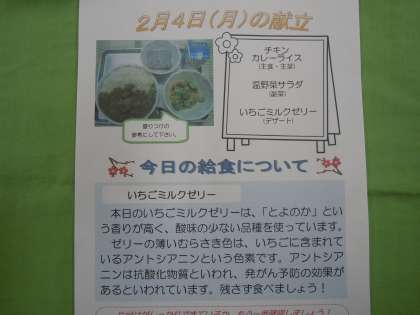 2月4日(月)の献立
チキン
カレーライス
(主食・主菜)
温野菜サラダ
(副菜)
いちごミルクゼリー
(デザート)
盛りつけの
参考にして下さい。
今日の給食について
いちごミルクゼリー
本日のいちごミルクゼリーは、「とよのか」とい
う香りが高く、酸味の少ない品種を使っています。
ゼリーの薄いむらさき色は、いちごに含まれて
いるアントシアニンという色素です。アントシア
ニンは抗酸化物質といわれ、発がん予防の効果が
あるといわれています。残さず食べましょう!